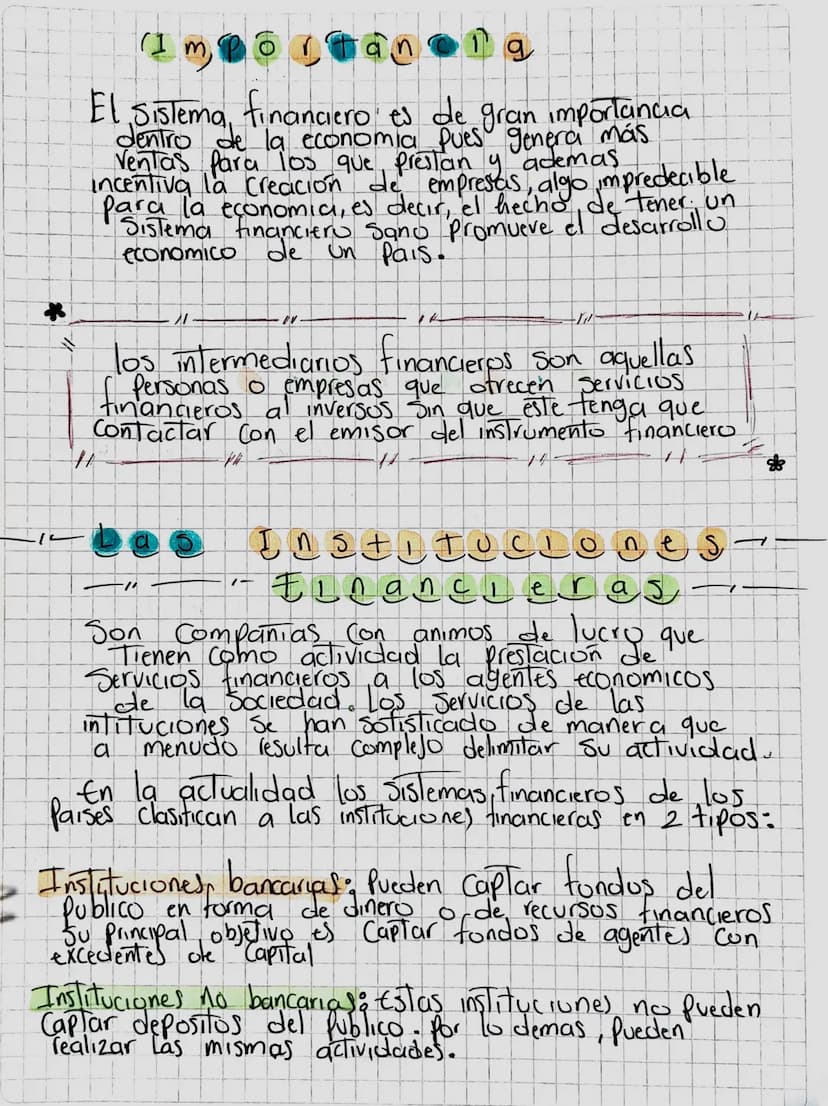 Importancia
El sistema financiero es de gran importancia
dentro de la economia pues genera más
ventas para los que prestan y ademas
incentiva la creación de empresas, algo impredecible
para la economia, es decir, el hecho de tener un
sistema financiero sano promueve el desarrollo
economico de un pais.
los intermediarios financieros son aquellas
personas o empresas que ofrecen servicios
financieros al inversos sin que este tenga que
contactar con el emisor del instrumento financiero
Las Instituciones
financieras
Son compañias con animos de lucro que
tienen como actividad la prestación de
servicios financieros a los agentes economicos
de la sociedad. Los servicios de las
intituciones se han sofisticado de manera que
a menudo resulta complejo delimitar su actividad.
En la actualidad los sistemas financieros de los
paises clasifican a las instituciones financieras en 2 tipos:
Instituciones bancarias: Pueden captar fondos del
publico en forma de dinero o de recursos financieros
su principal objetivo es captar fondos de agentes con
excedentes de capital
Instituciones no bancarias: Estas instituciones no pueden
captar depositos del publico. Por lo demas, pueden
realizar las mismas actividades.